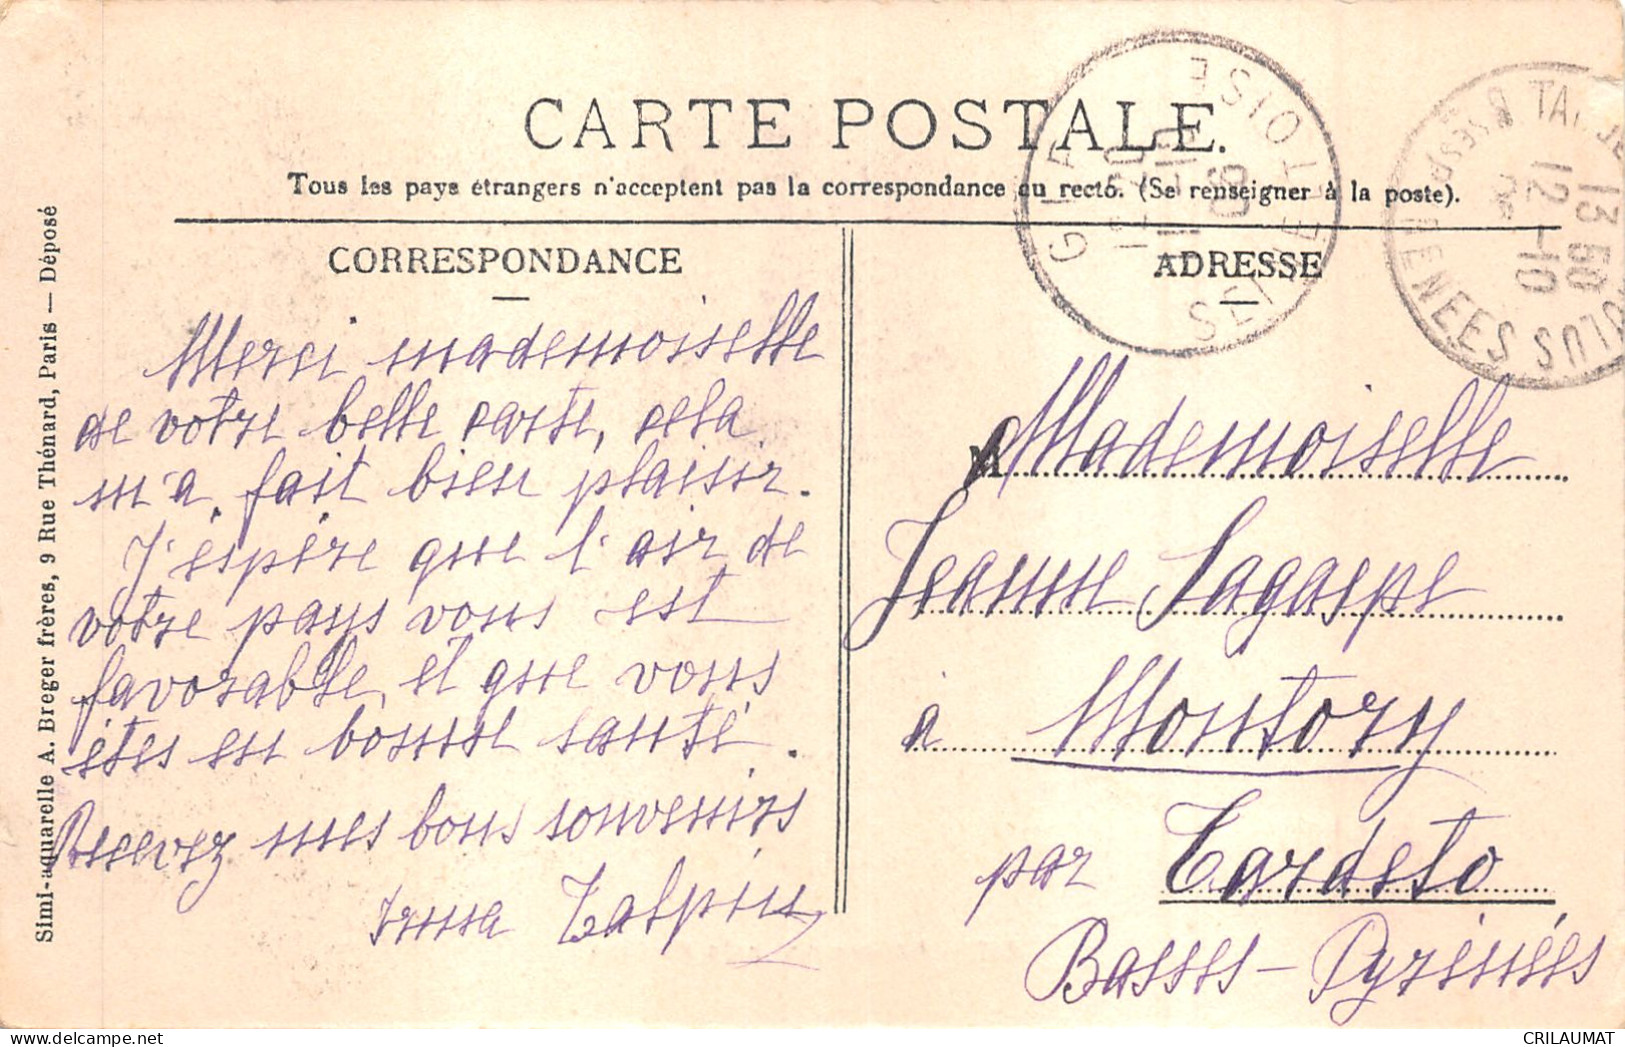 CARTE POSTALE.
Tous les pays étrangers n'acceptent pas la correspondance au recto. (Se renseigner à la poste).
CORRESPONDANCE
Merci mademoiselle
de votre belle carte, cela
m'a fait bien plaisir.
J'espère que l'air de
votre pays vous est
favorable, et que vous
êtes en bonne santé.
Recevez mes bons souvenirs
Irma Talpin
ADRESSE
M Mademoiselle
Jeanne Lagaspe
à Montory
par Tardets
Basses-Pyrénées
SEINE ET OISE
13 50
12 -10
BSES PYRENEES
Simi-aquarelle A. Breger frères, 9 Rue Thénard, Paris — Déposé
CRILAUMAT